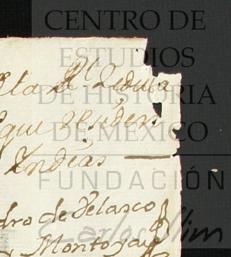 CENTRO DE
ESTUDIOS
DE HISTORIA
DE MÉXICO
FUNDACIÓN
Carlos Slim
Rl Zedula
que
Yndias
dro de Velasco
Montoya